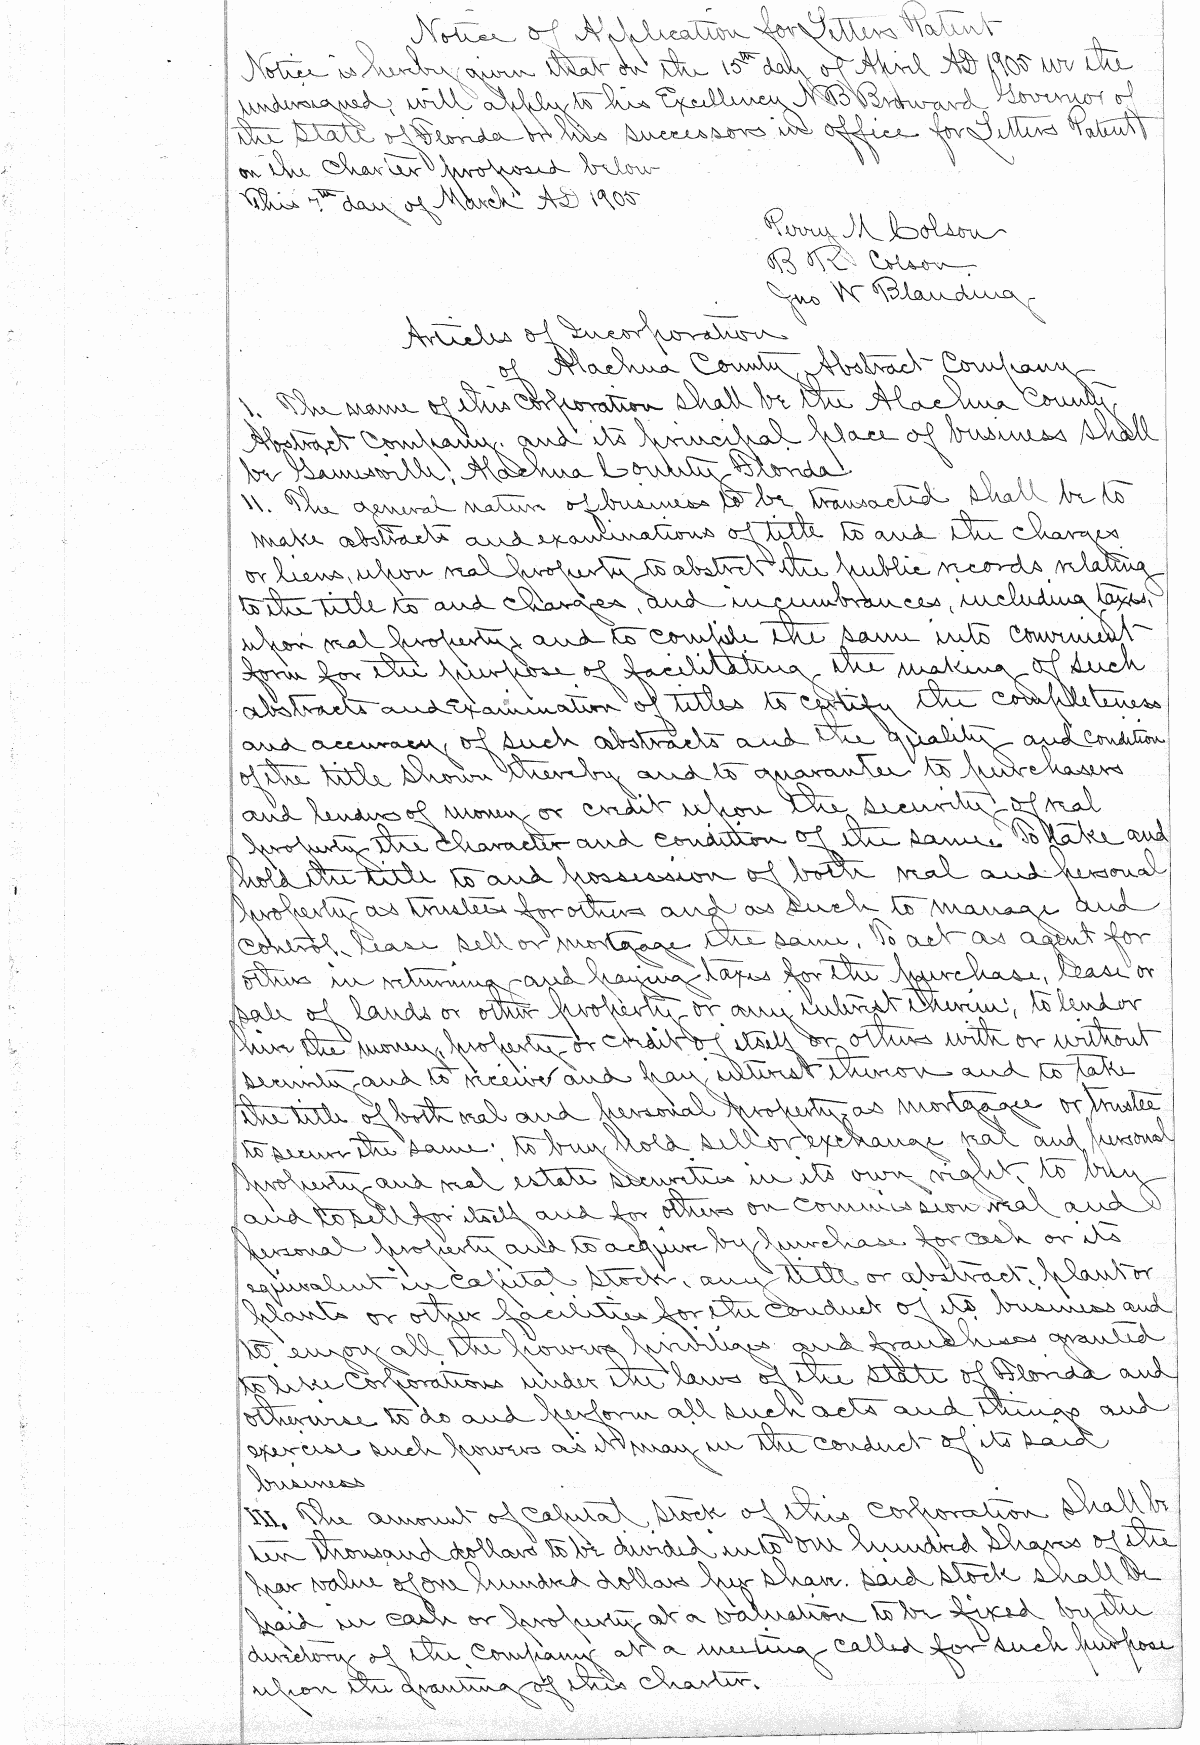 Notice of Application for Letters Patent
Notice is hereby given that on the 15th day of April AD 1905 we the
undersigned, will apply to his Excellency N B Broward Governor of
the State of Florida or his successors in office for Letters Patent
on the Charter proposed below
This 7th day of March AD 1905
Perry M Colson
B R Colson
Geo W Blanding
Articles of Incorporation
of Alachua County Abstract Company
I. The name of this Corporation shall be the Alachua County
Abstract Company. and its principal place of business shall
be Gainesville, Alachua County Florida.
II. The general nature of business to be transacted shall be to
make abstracts and examinations of title to and the charges
or liens, upon real property to abstrct the public records relating
to the title to and charges, and incumbrances, including taxes,
upon real property, and to compile the same into convenient
form for the purpose of facilitating the making of such
abstracts and Examination of titles to certify the completeness
and accuracy of such abstracts and the quality and condition
of the title shown thereby and to guarantee to purchasers
and lenders of money or credit upon the security of real
property the character and condition of the same. To take and
hold the title to and possession of both real and personal
property as trustees for others and as such to manage and
control, lease sell or mortgage the same. To act as agent for
others in returning and paying taxes for the purchase, lease or
sale of lands or other property or any interest therein; to lend or
hire the money, property or credit of itself or others with or without
security and to receive and pay interest thereon and to take
the title of both real and personal property as mortgagee or trustee
to secure the same; to buy hold sell or exchange real and personal
property and real estate securities in its own right, to buy
and to sell for itself and for others on commission real and
personal property and to acquire by purchase for cash or its
equivalent in capital stock, any title or abstract, plant or
plants or other facilities for the conduct of its business and
to enjoy all the powers privileges and franchises granted
to like Corporations under the laws of the State of Florida and
otherwise to do and perform all such acts and things and
exercise such powers as it may in the conduct of its said
business
III. The amount of Capital Stock of this Corporation shall be
ten thousand dollars to be divided into one hundred shares of the
par value of one hundred dollars per share. said stock shall be
paid in cash or property at a valuation to be fixed by the
directory of the Company at a meeting called for such purpose
upon the granting of this charter.